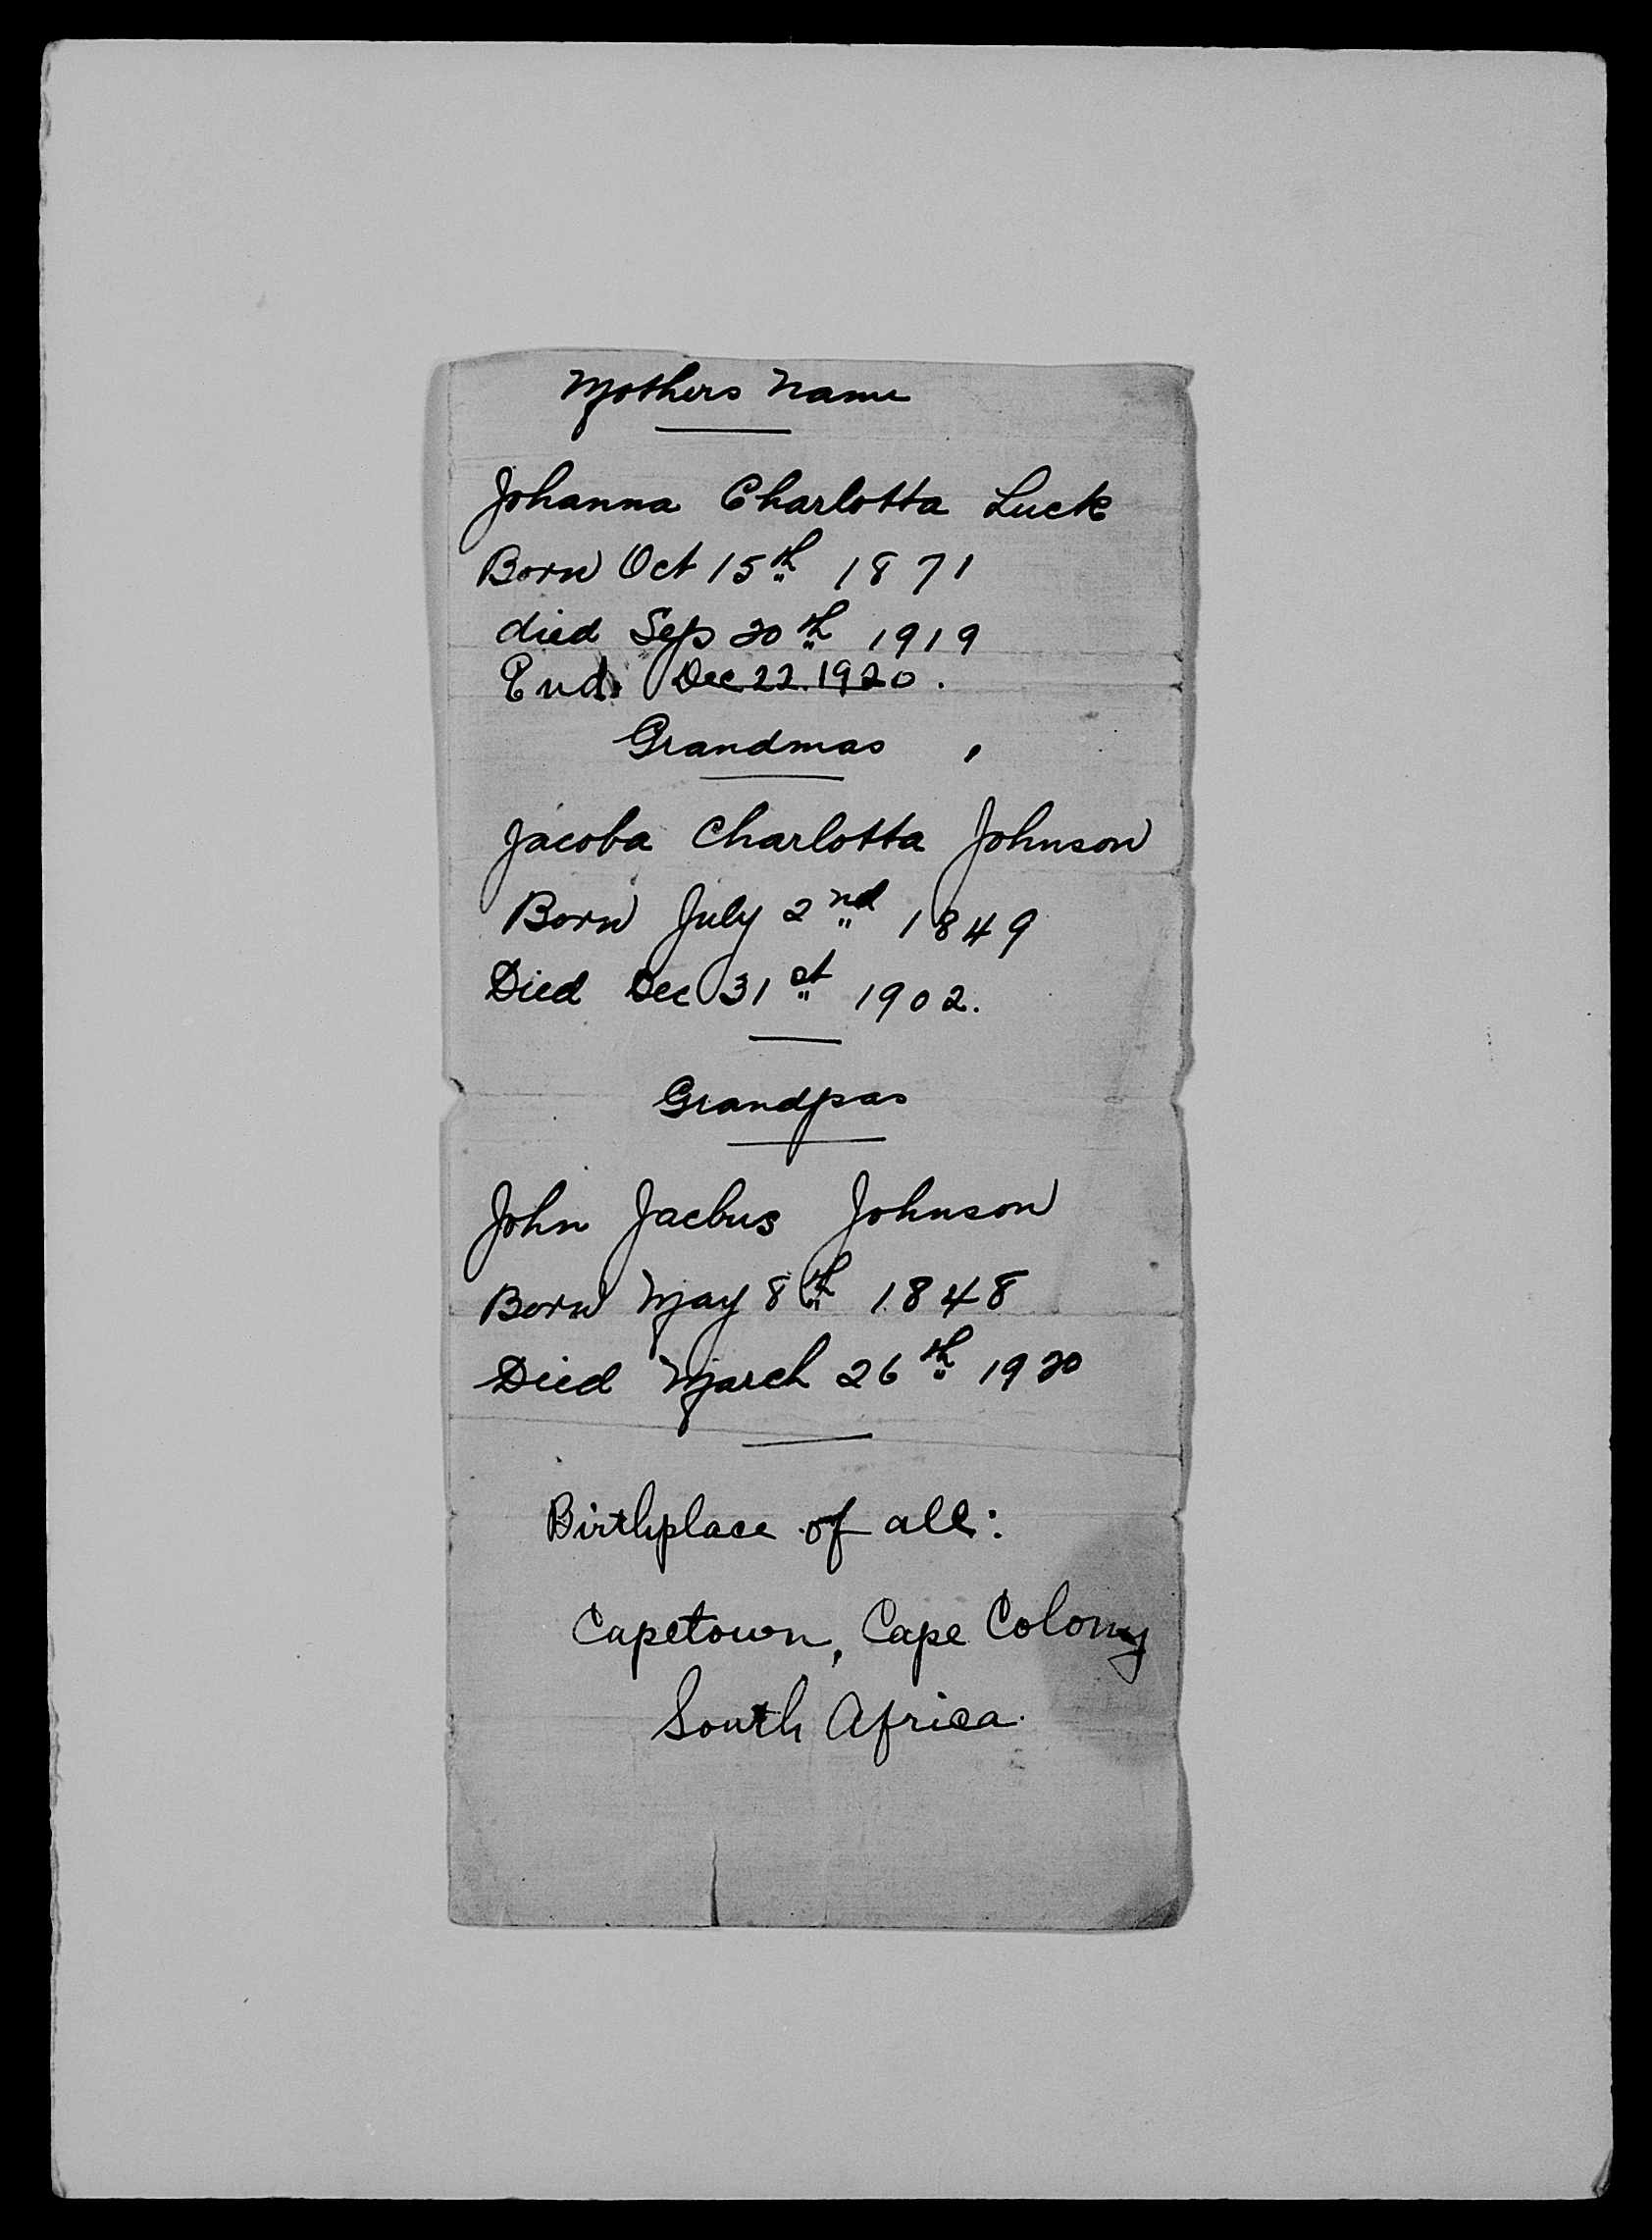 Mothers Name
Johanna Charlotta Luck
Born Oct 15th 1871
died Sep 20th 1919
End. Dec 22. 1920.
Grandmas
Jacoba Charlotta Johnson
Born July 2nd 1849
Died Dec 31st 1902.
Grandpas
John Jacbus Johnson
Born May 8th 1848
Died March 26th 1920
Birthplace of all:
Capetown, Cape Colony
South Africa.